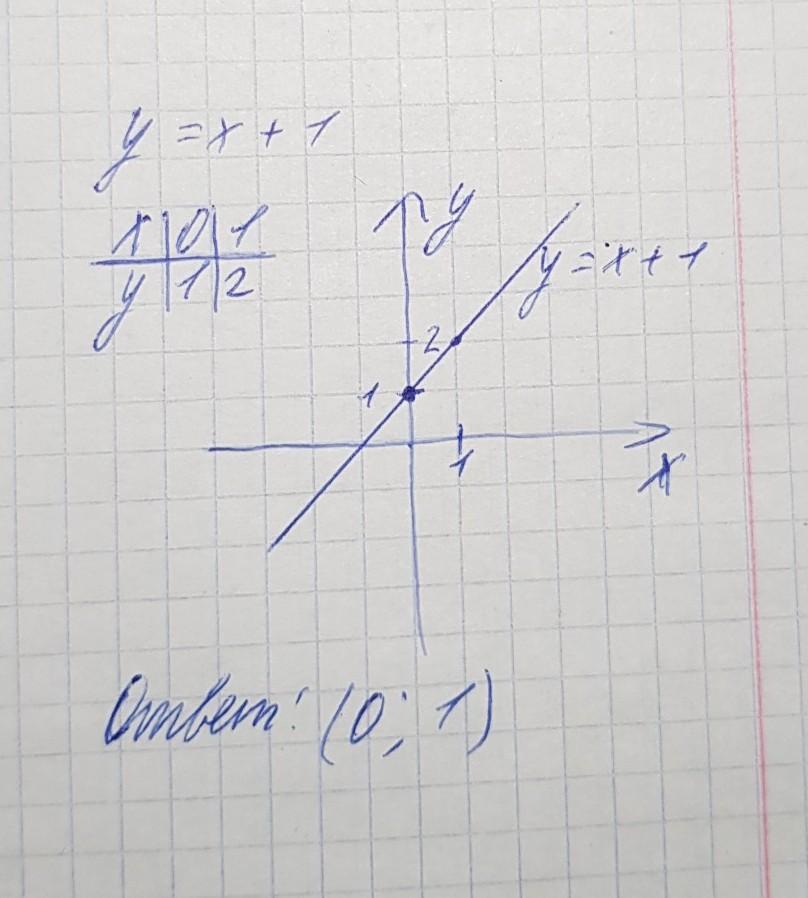 y = x + 1
x 0 1
y 1 2
y
y = x + 1
2
1
1
x
Ответ: (0; 1)